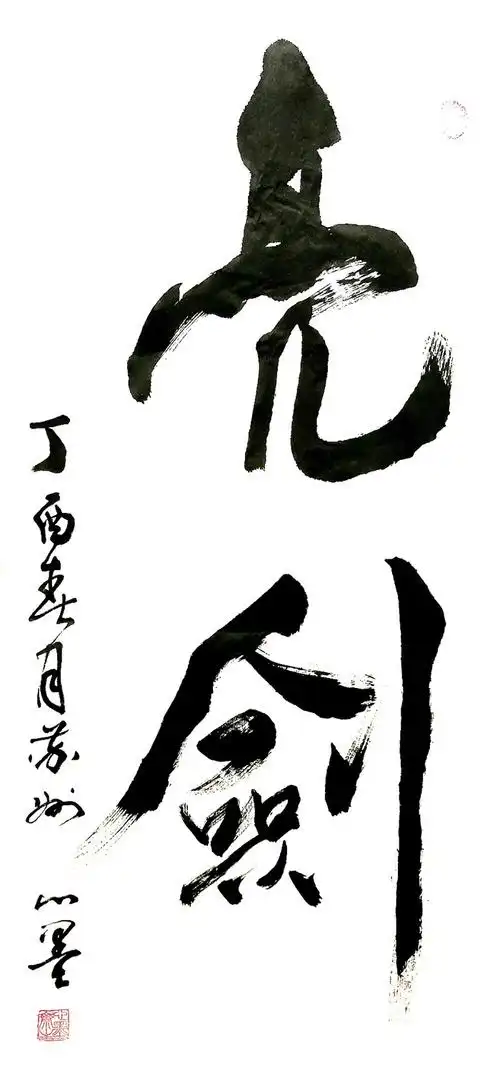 亮劍
丁酉春月苏州 心墨